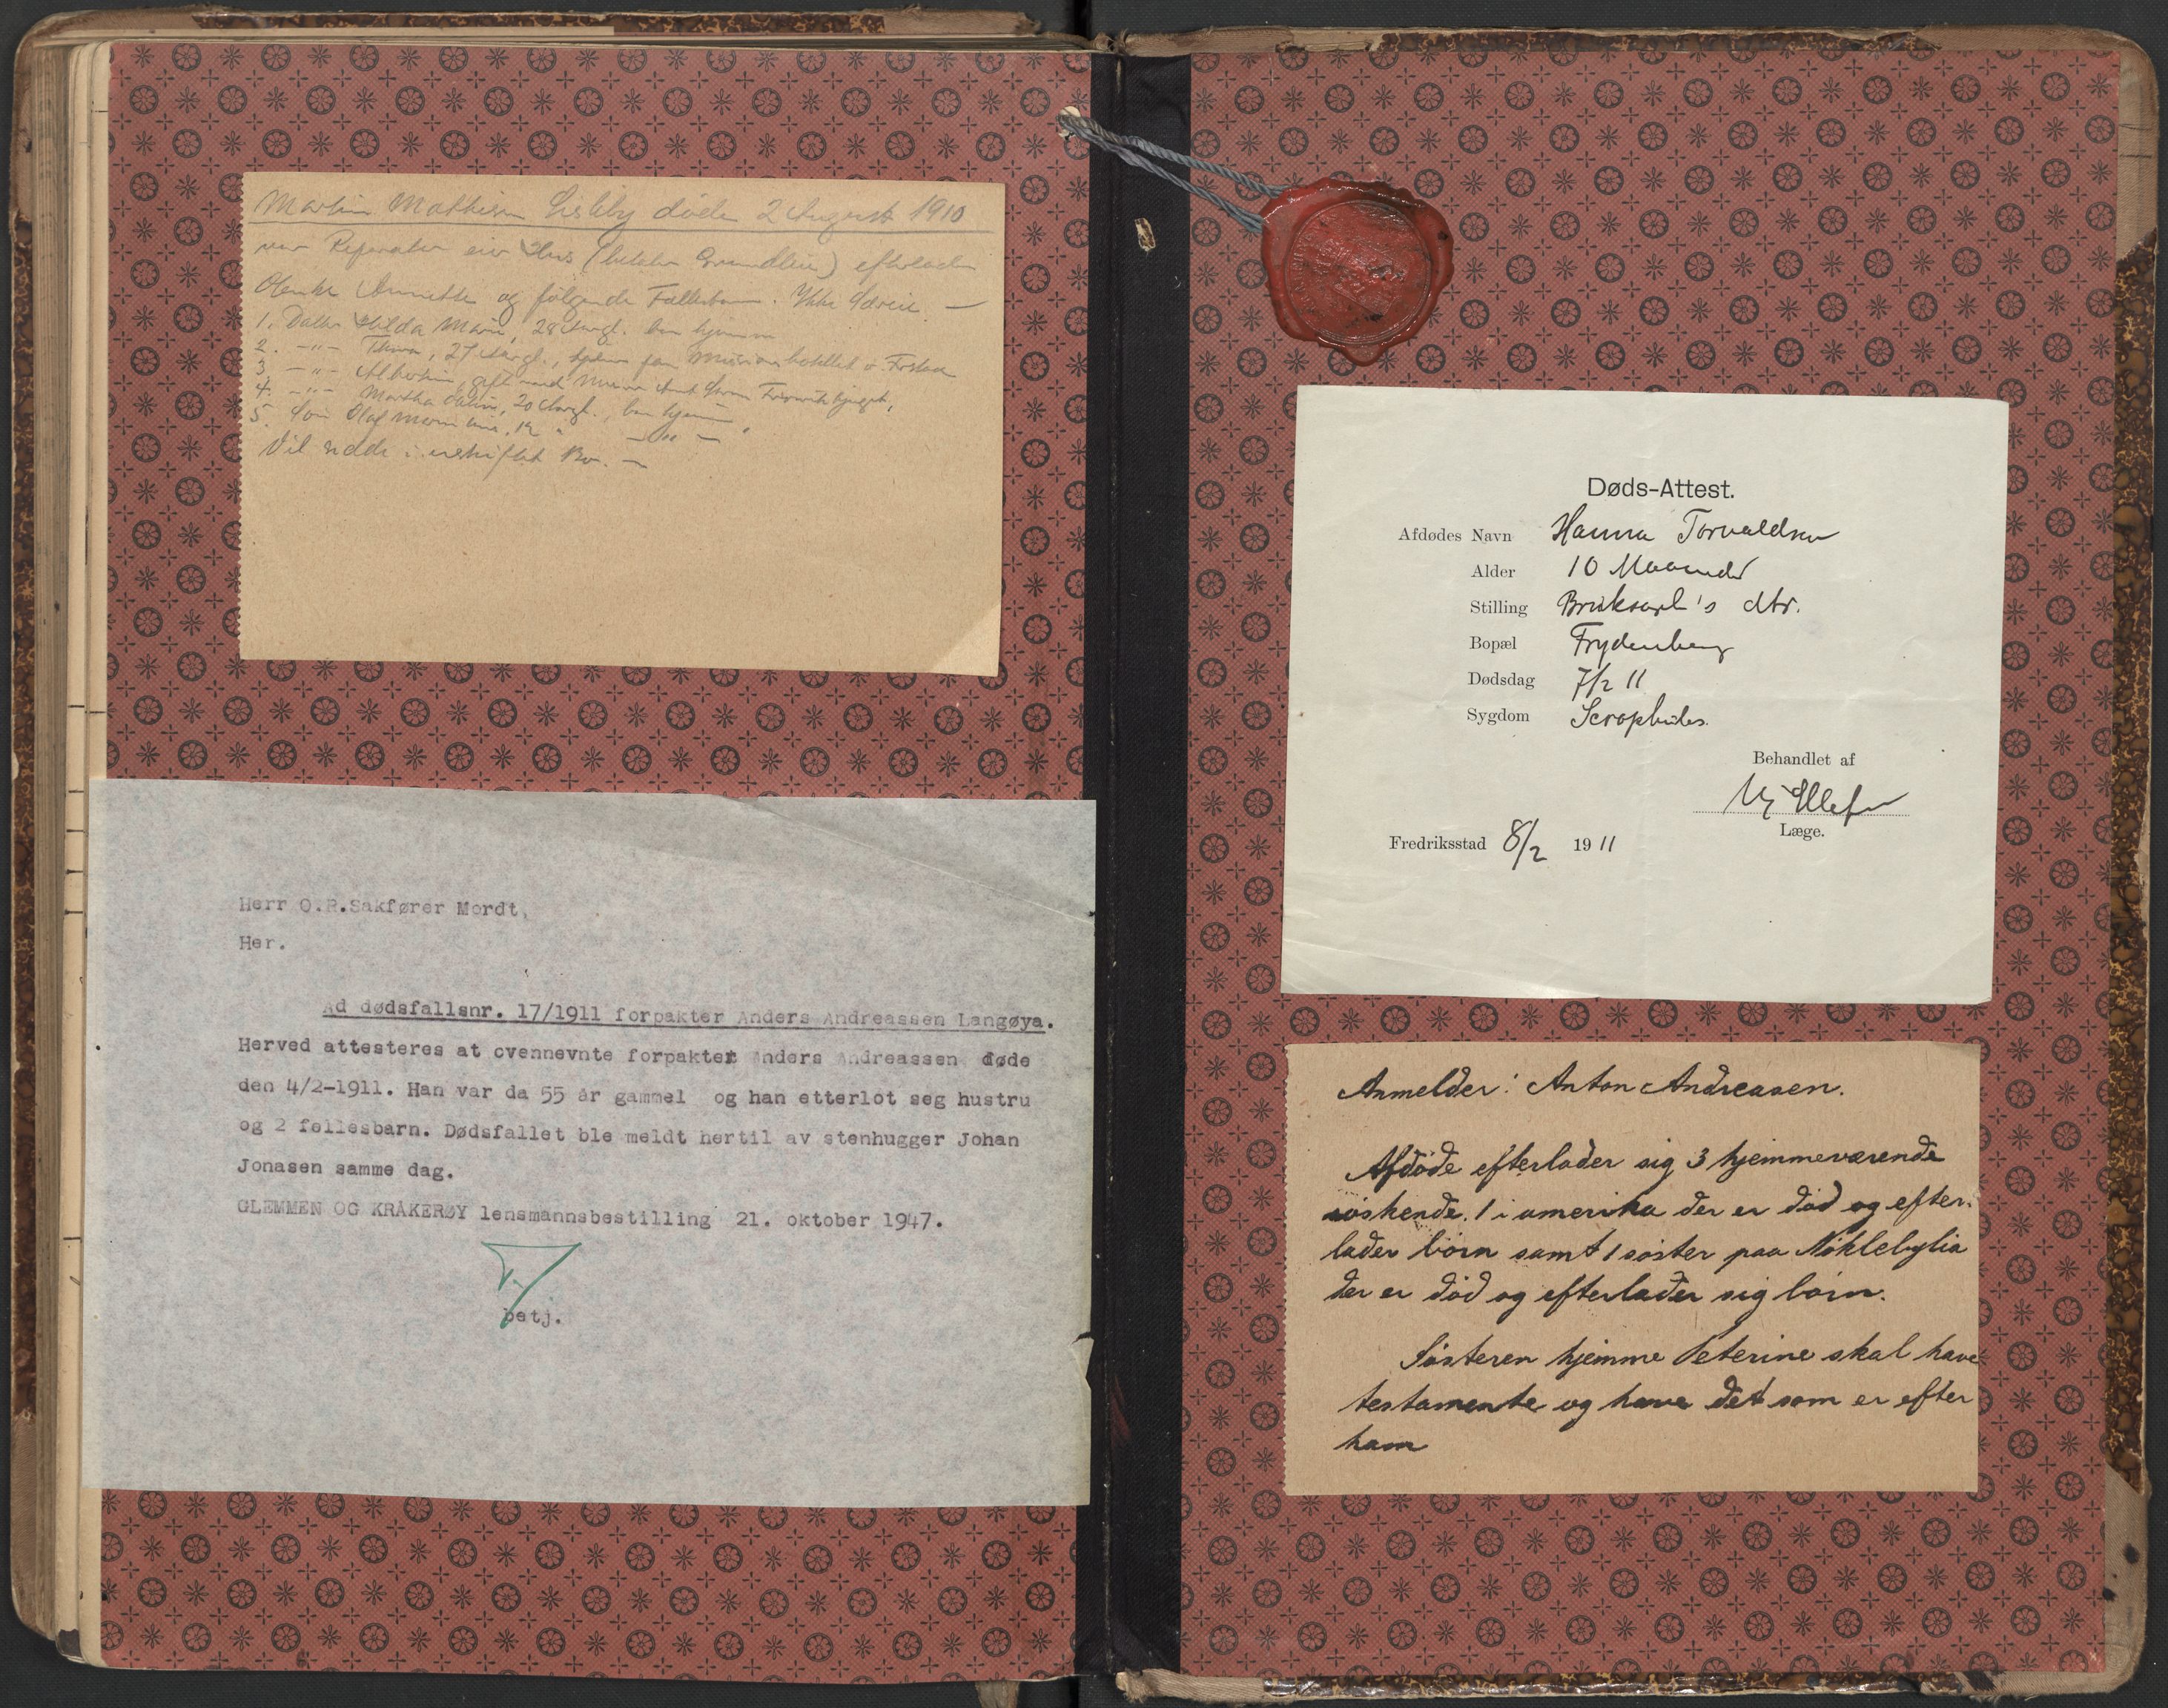 Martin Mathisen Lisleby døde 2 August 1910
var Reparatør eier Hus (betaler Grundleie) efterlader
Enke Annette og følgende Fællesbarn. Ikke Særeie. —
1. Datter Hilda Marie, 28 Aargl. bor hjemme
2. —"— Thora, 27 Aargl., tjener paa Missionshotellet i Frstad
3. —"— Albertine, gift med
4. —"— Martha Galine, 20 Aargl., bor hjemme
5. Søn Olaf 12 " —"—
Vil sidde i uskiftet Bo. —
Herr O.R.Sakfører Mordt,
Her.
Ad dødsfallsnr. 17/1911 forpakter Anders Andreassen Langøya.
Herved attesteres at ovennevnte forpakter Anders Andreassen døde
den 4/2-1911. Han var da 55 år gammel og han etterlot seg hustru
og 2 fellesbarn. Dødsfallet ble meldt hertil av stenhugger Johan
Jonasen samme dag.
GLEMMEN OG KRÅKERØY lensmannsbestilling 21. oktober 1947.
betj.
Døds-Attest.
Afdødes Navn Hanna Torvaldsen
Alder 10 Maaneder
Stilling Bruksarb's dtr.
Bopæl Frydenberg
Dødsdag 7/2 11
Sygdom Scrophulos.
Behandlet af
Læge.
Fredriksstad 8/2 1911
Anmelder: Anton Andreasen.
Afdøde efterlader sig 3 hjemmeværende
søskende. 1 i amerika der er død og efter-
lader børn samt 1 søster paa Nøklebylia
der er død og efterlader sig børn.
Søsteren hjemme Peterine skal have
testamente og have det som er efter
ham